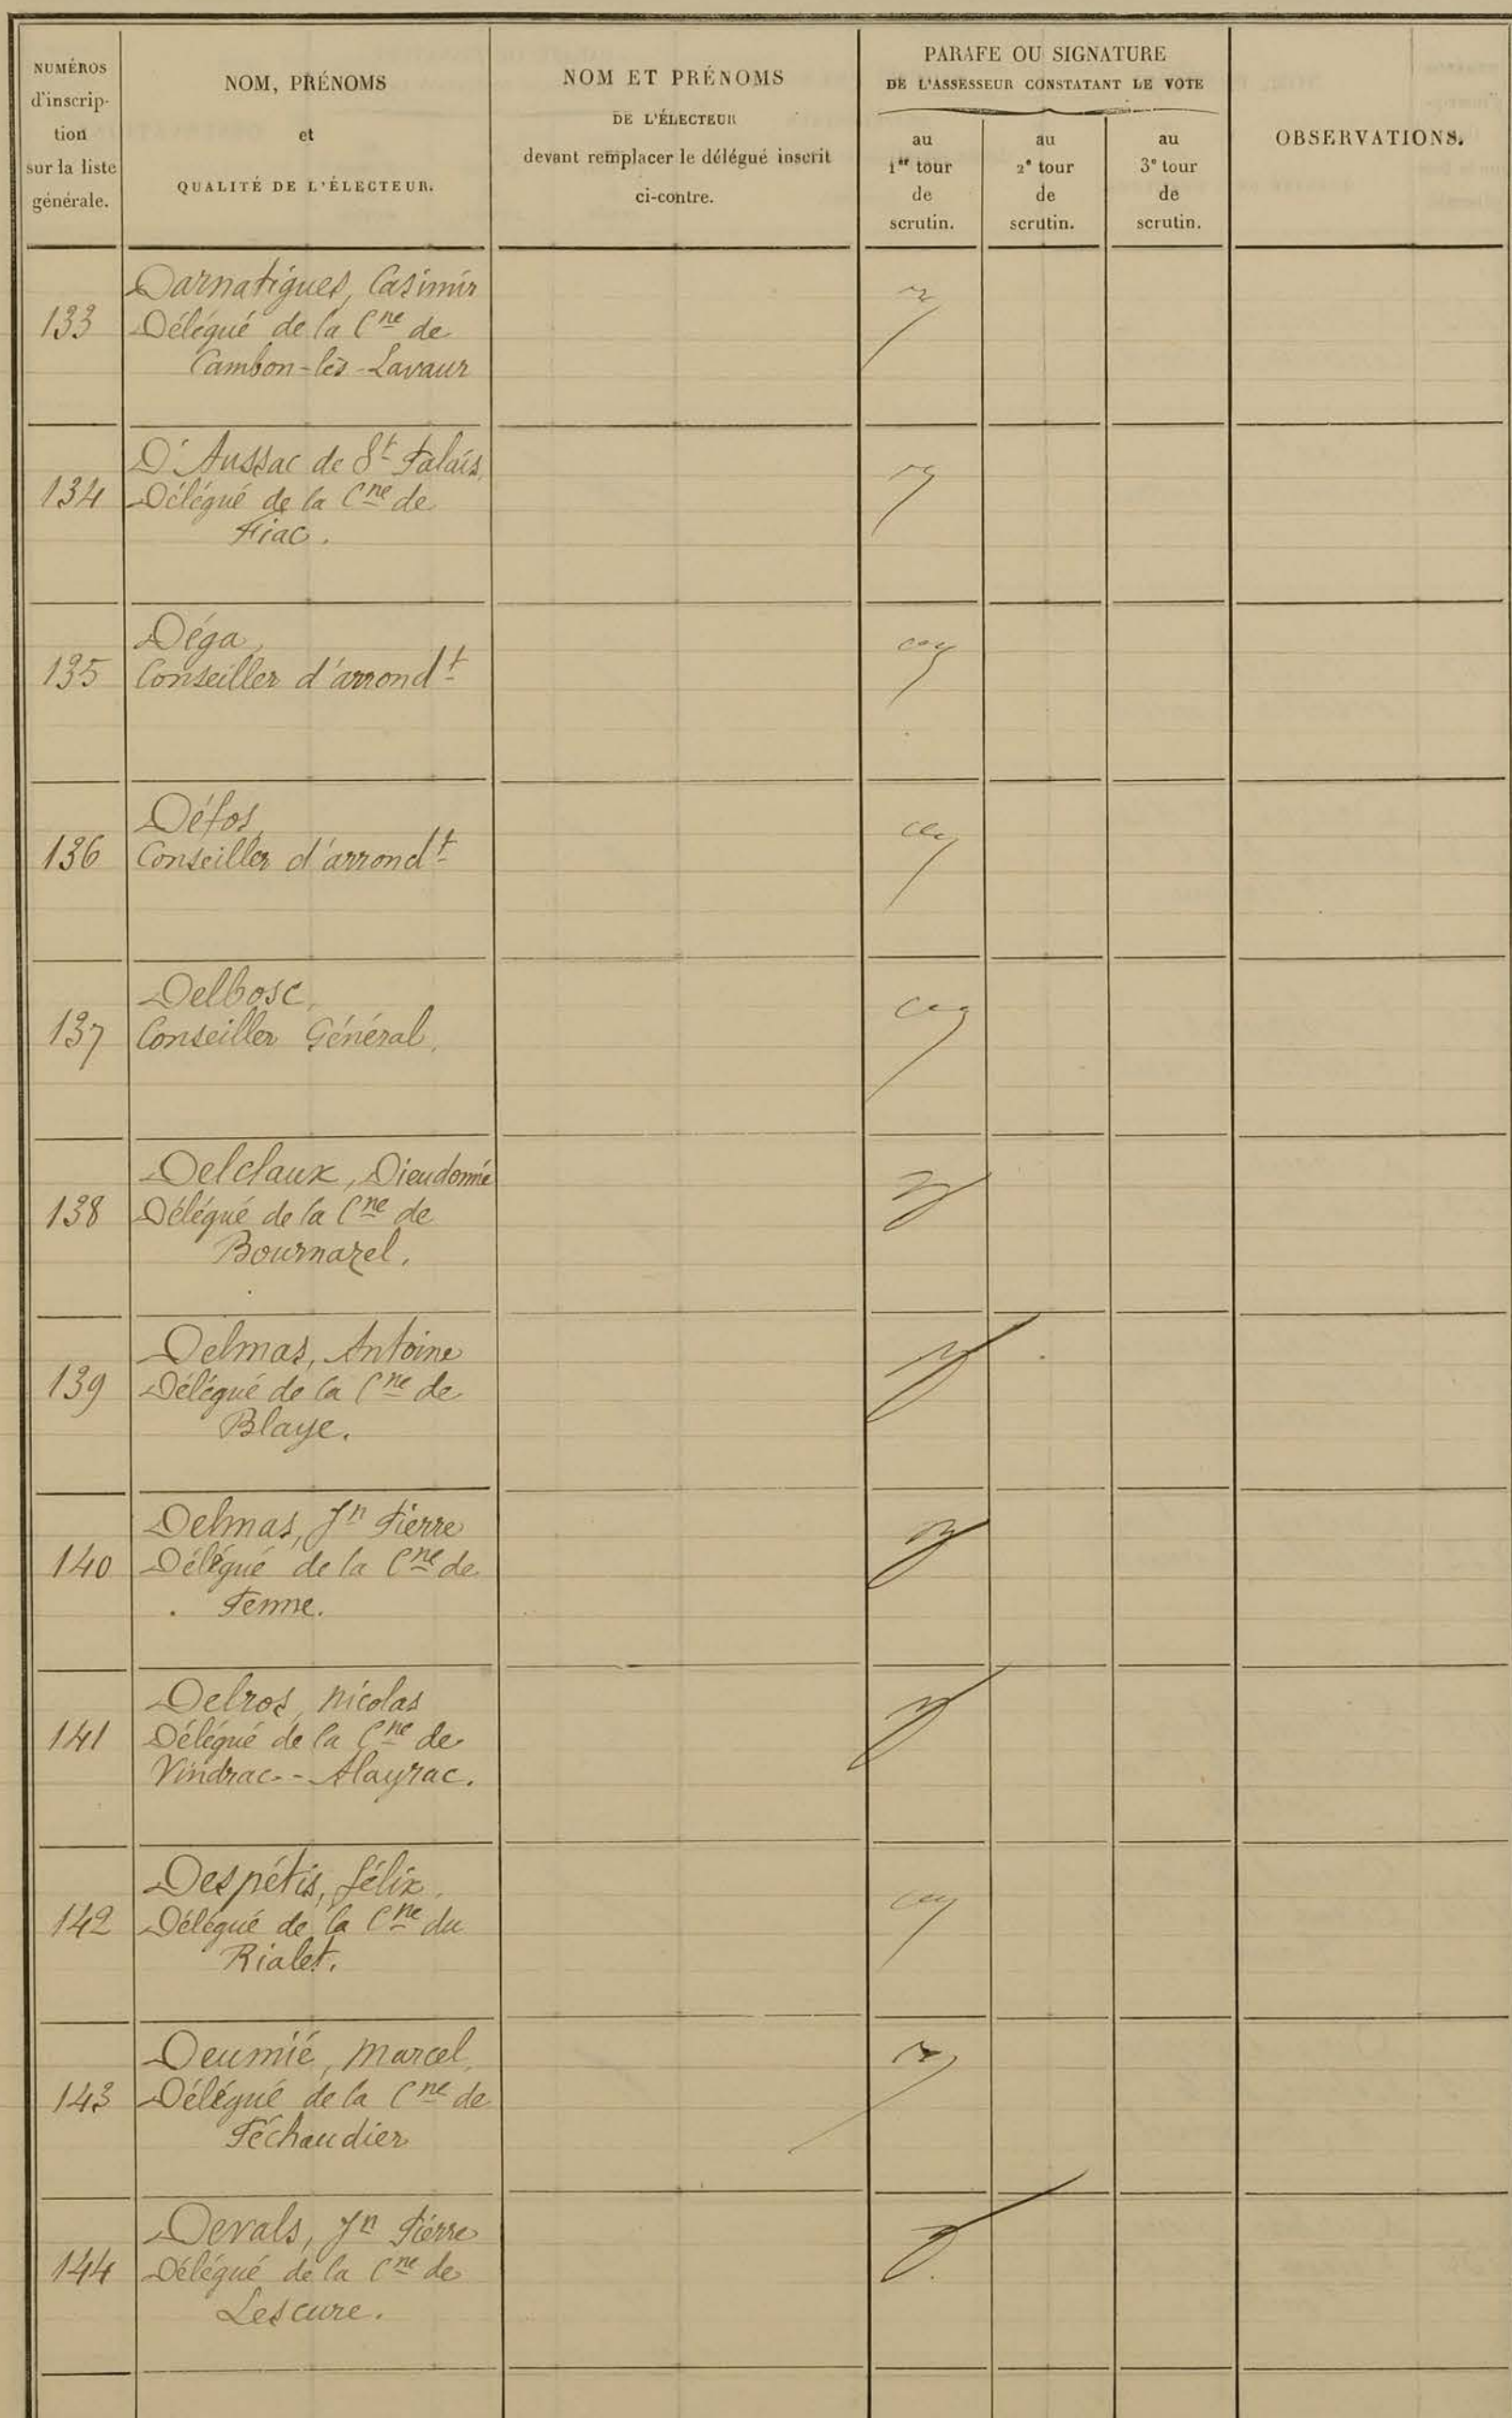 NUMÉROS
d'inscrip-
tion
sur la liste
générale.
NOM, PRÉNOMS
et
QUALITÉ DE L'ÉLECTEUR.
NOM ET PRÉNOMS
DE L'ÉLECTEUR
devant remplacer le délégué inscrit
ci-contre.
PARAFE OU SIGNATURE
DE L'ASSESSEUR CONSTATANT LE VOTE
au
1er tour
de
scrutin.
au
2e tour
de
scrutin.
au
3e tour
de
scrutin.
OBSERVATIONS.
133
Darnatigues, Casimir
Délégué de la Cne de
Cambon-lès-Lavaur
134
D'Aussac de St Palais,
Délégué de la Cne de
Fiac.
135
Déga,
Conseiller d'arrondt
136
Défos,
Conseiller d'arrondt
137
Delbosc,
Conseiller Général,
138
Delclaux, Dieudonné
Délégué de la Cne de
Bournazel.
139
Delmas, Antoine
Délégué de la Cne de
Blaye.
140
Delmas, Jn Pierre
Délégué de la Cne de
Penne.
141
Delros, Nicolas
Délégué de la Cne de
Vindrac--Alayrac.
142
Despétis, Félix,
Délégué de la Cne du
Rialet.
143
Deumié, Marcel,
Délégué de la Cne de
Péchaudier
144
Devals, Jn Pierre
Délégué de la Cne de
Lescure.